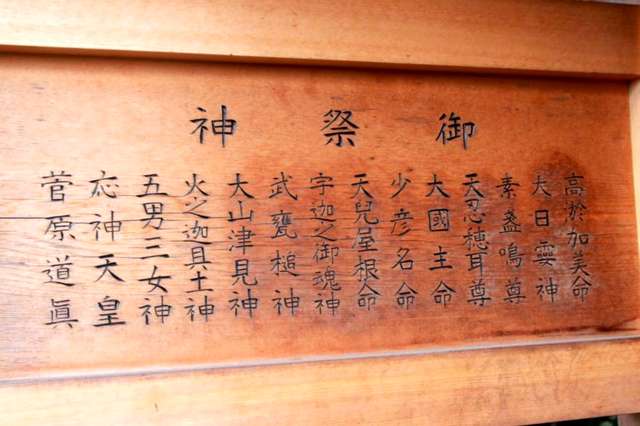 御祭神
高於加美命
大日孁神
素盞鳴尊
天忍穂耳尊
大國主命
少彦名命
天兒屋根命
宇迦之御魂神
武甕槌神
大山津見神
火之迦具土神
五男三女神
応神天皇
菅原道眞